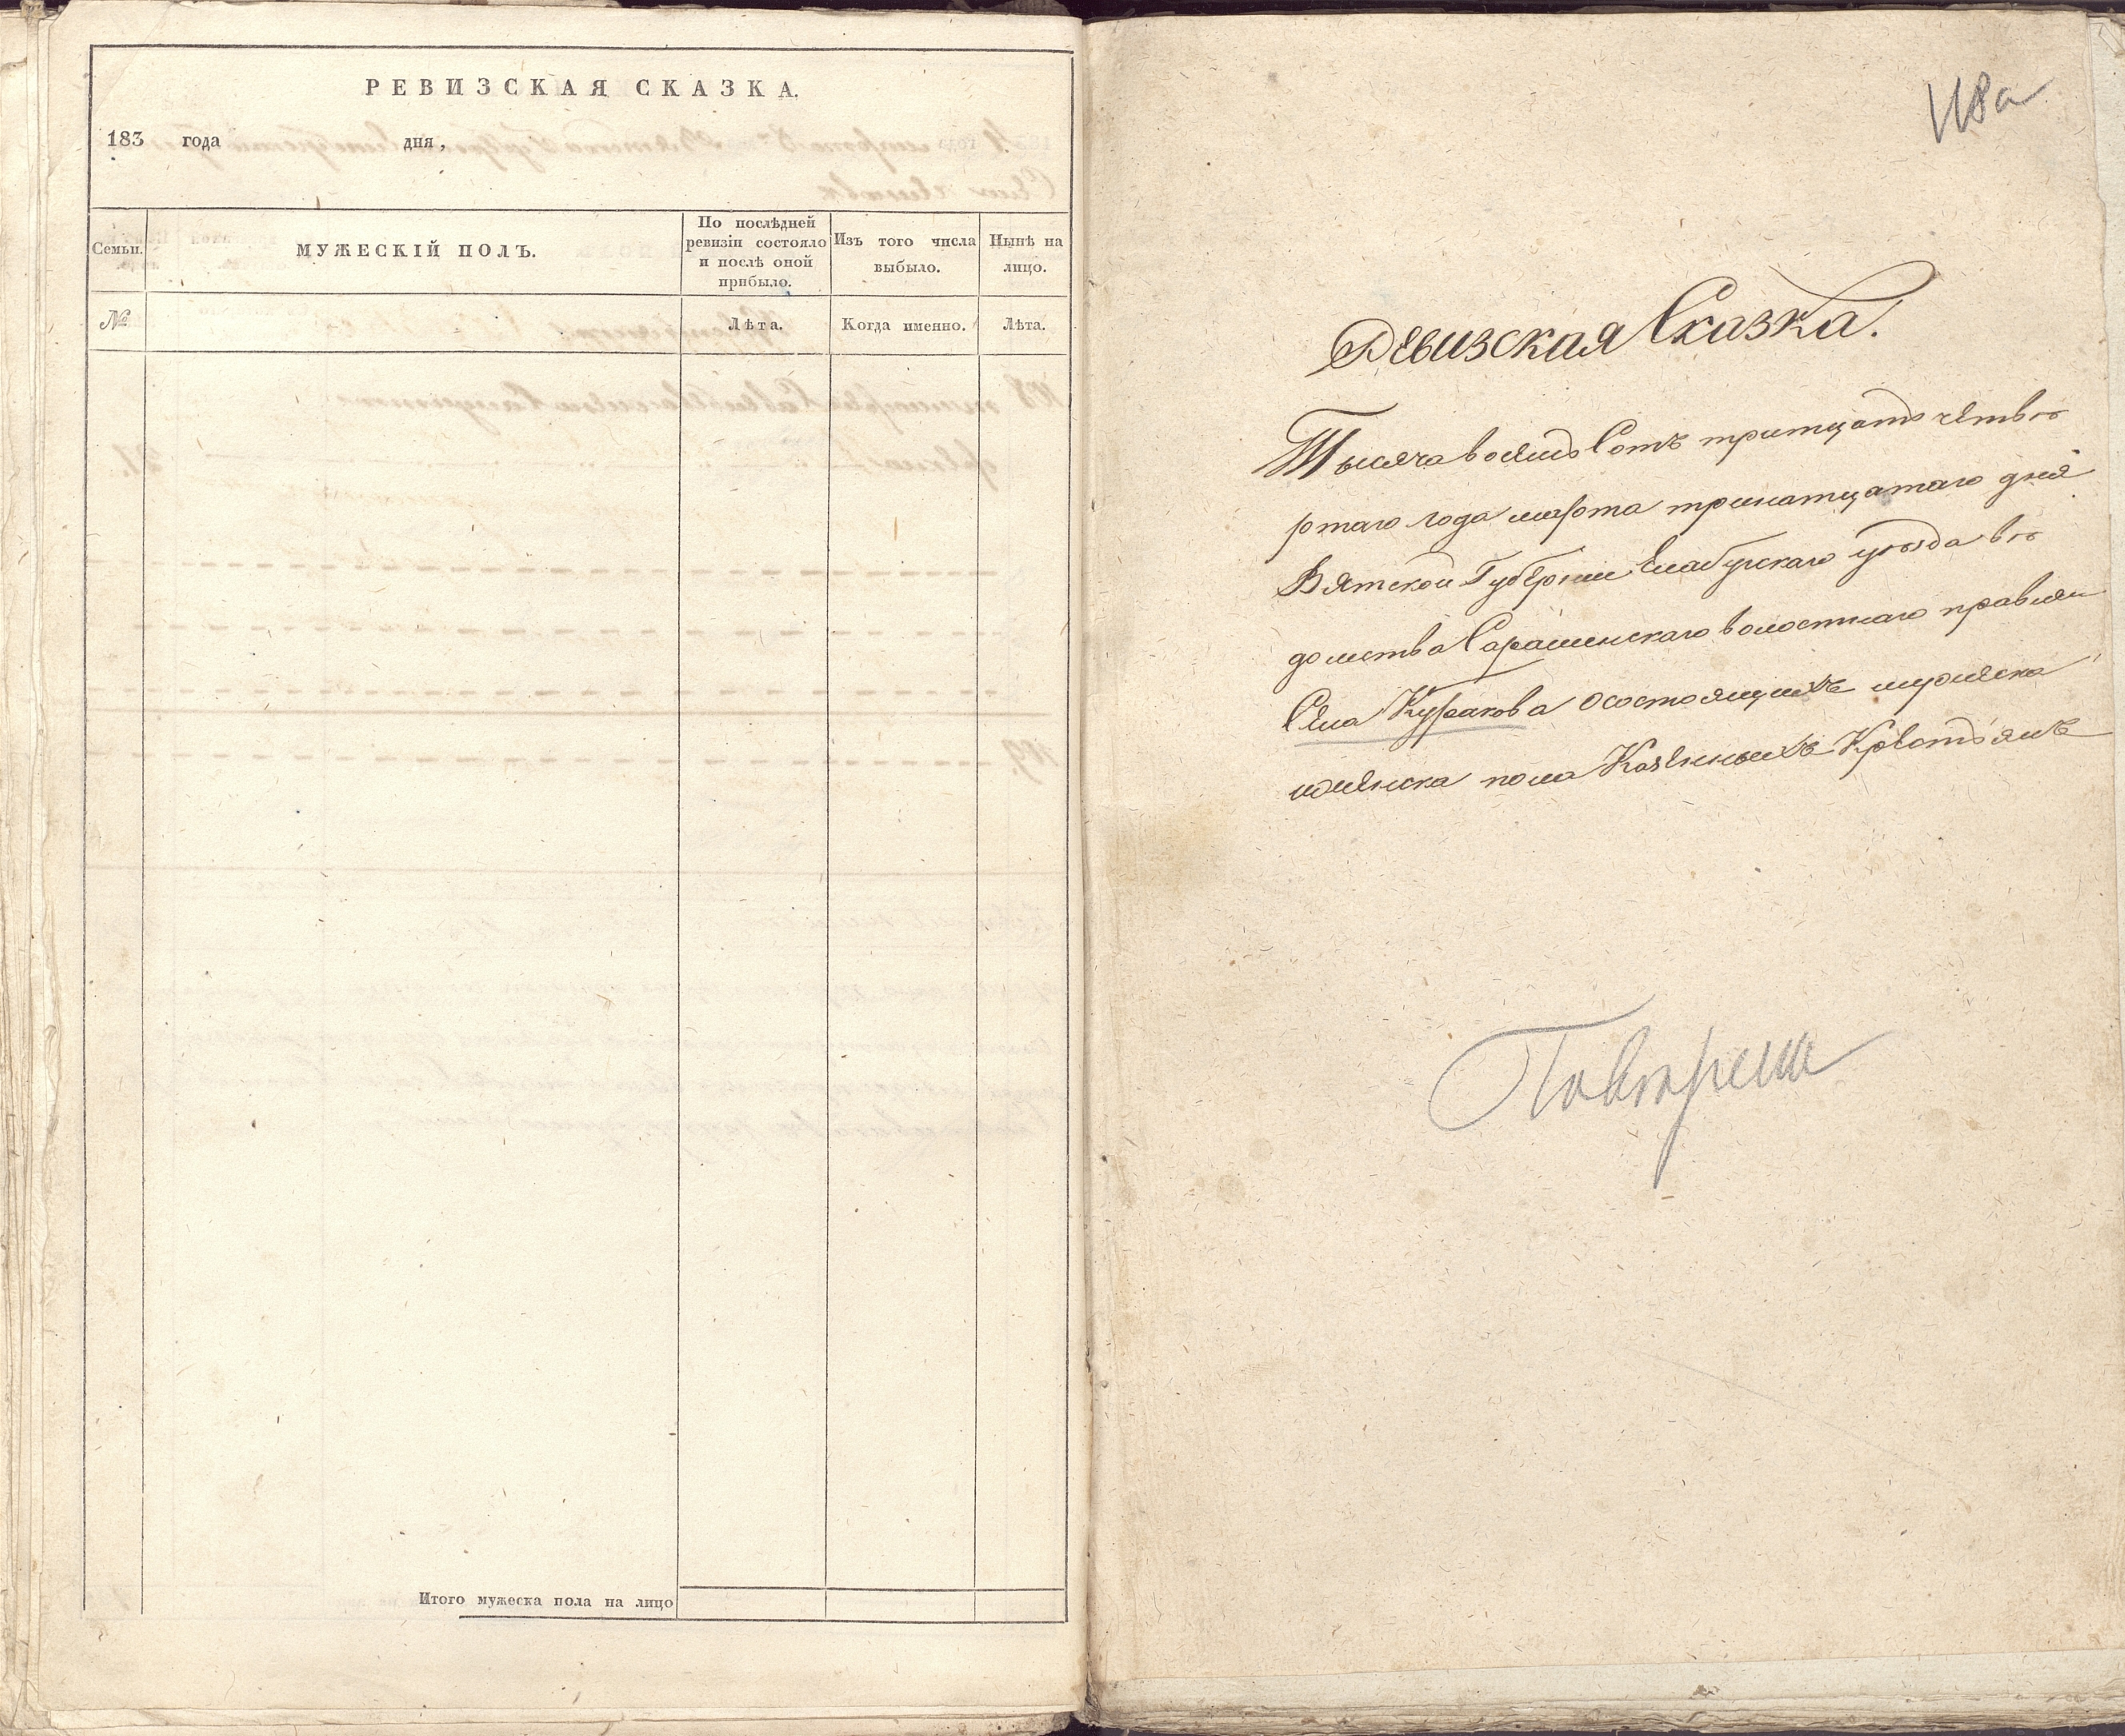 РЕВИЗСКАЯ СКАЗКА.
183 года дня,
Семьи.
МУЖЕСКІЙ ПОЛЪ.
По послѣдней ревизіи состояло и послѣ оной прибыло.
Изъ того числа выбыло.
Нынѣ на лицо.
№
Лѣта.
Когда именно.
Лѣта.
Итого мужеска пола на лицо
118а
Ревизская Сказка.
Тысяча восемь Сотъ тритцать четве
ртаго года марта тринатцатаго дня
Вятской Губернии Елабугскаго уѣзда вѣ
домства Сарашевскаго волостнаго правлен
Села Куракова о состоящихъ мужеска
и женска пола Казенныхъ Крестьянъ